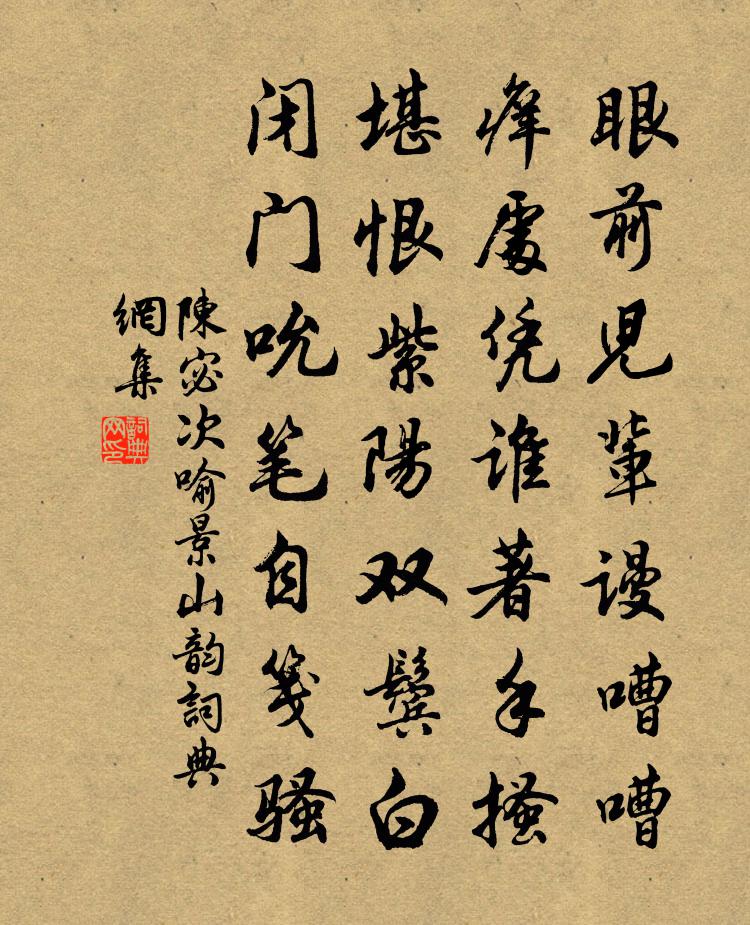 眼前児輩谩嘈嘈
痒處凭谁著手搔
堪恨紫陽双鬓白
闭门吮笔自笺骚
陳宓次喻景山韵詞典
網集
詞典网印